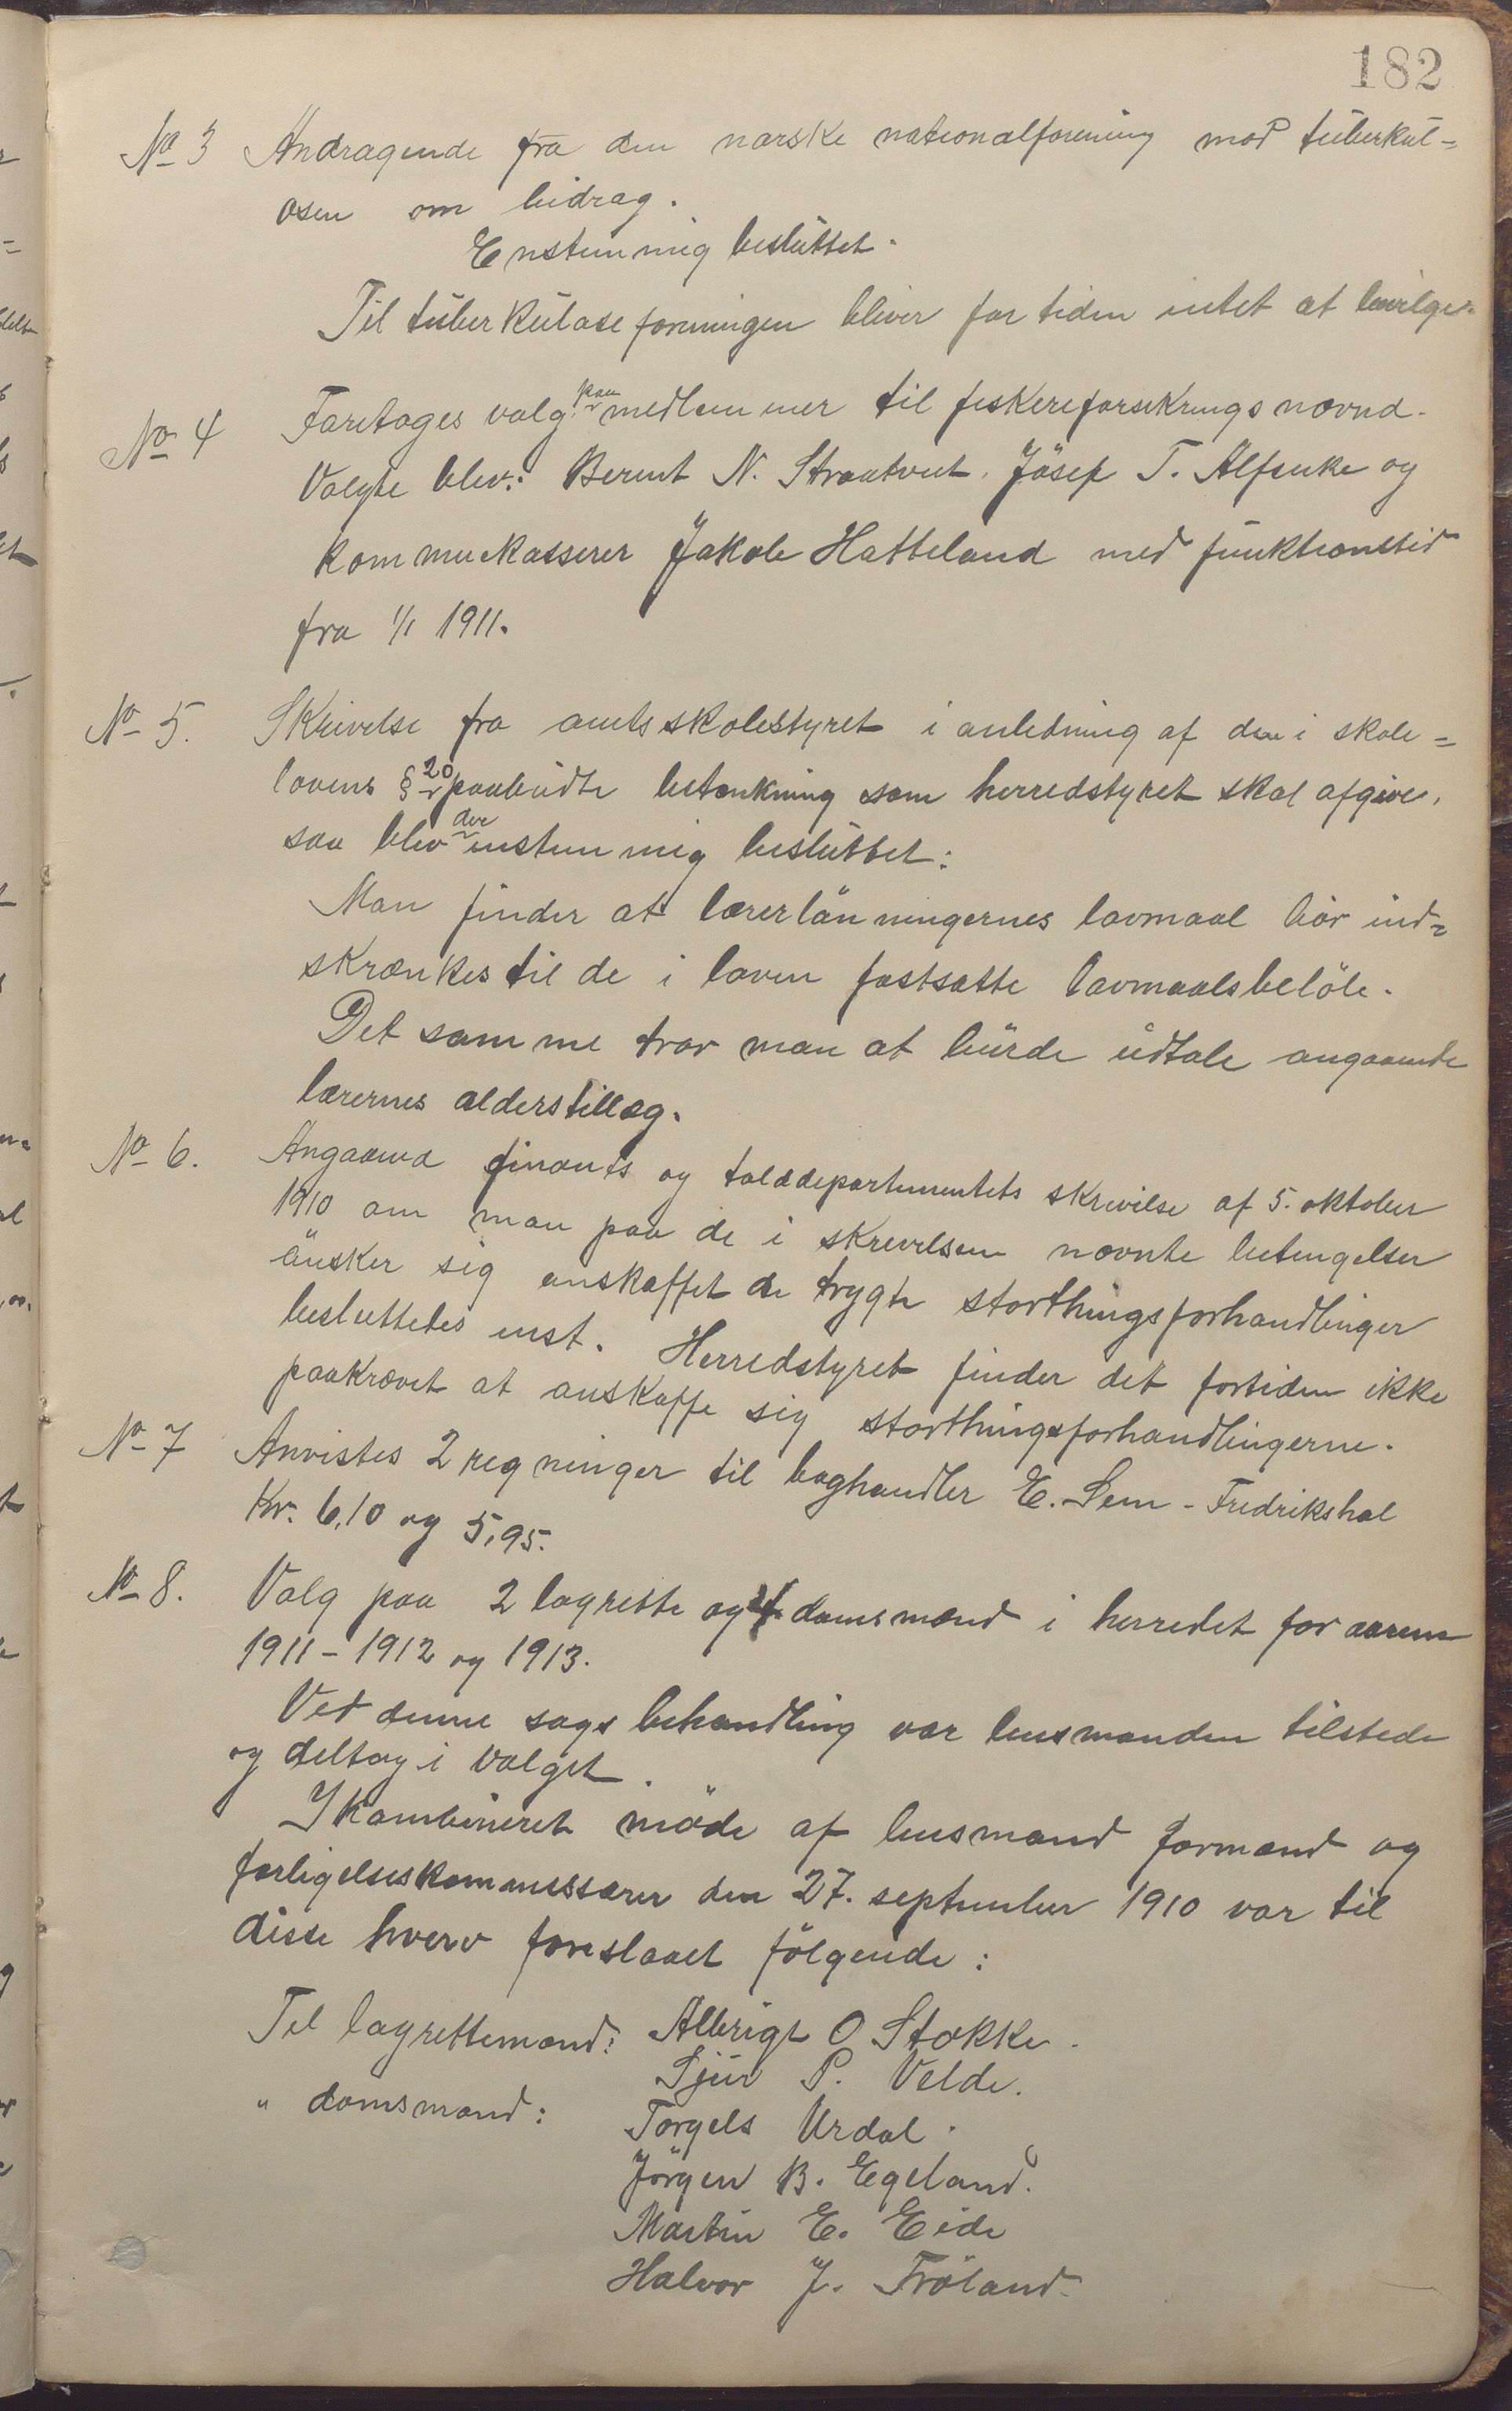 182
No 3 Andragende fra den norske nationalforening mod tuberkul=
osen om bidrag.
Enstemmig besluttet.
Til tuberkuloseforeningen bliver for tiden intet at bevilge.
No 4 Foretages valg paa medlemmer til fiskereforsikrings nævnd.
Valgte blev: Bernt N. Straatveit, Jósep T. Alfsnke og
kommunekasserer Jakob Hatteland med funktionstid
fra 1/1 1911.
No 5. Skrivelse fra amtsskolestyret i anledning af den i skole=
lovens § 20 paabudte betænkning som herredstyret skal afgive,
saa blev der enstemmig besluttet:
Man finder at lærerlönningernes lavmaal bör ind=
skrænkes til de i loven fastsatte lavmaalsbelöb.
Det samme tror man at burde udtale angaaende
lærernes alderstillæg.
No 6. Angaaend finants og tolddepartementets skrivelse af 5. oktober
1910 om man paa de i skrivelsen nævnte betingelser
önsker sig anskaffet de trygte storthingsforhandlinger
besluttedes enst. Herredstyret finder det fortiden ikke
paakrævet at anskaffe sig storthingsforhandlingerne.
No 7 Anvistes 2 regninger til boghandler E. Sem - Fredrikshal
Kr. 6,10 og 5,95.
No 8. Valg paa 2 lagrette og 4 domsmænd i herredet for aarene
1911 - 1912 og 1913.
Ved denne sags behandling var lensmanden tilstede
og deltog i valget.
I kombineret möde af lensmand formænd og
forligelseskommissærer den 27. september 1910 var til
disse hverv foreslaaet fölgende:
Til lagrettemænd: Albrigt O Stokke.
Sjur P. Velde.
" domsmænd: Torgels Urdal.
Jörgen B. Egeland.
Martin E. Eide
Halvor J. Fröland